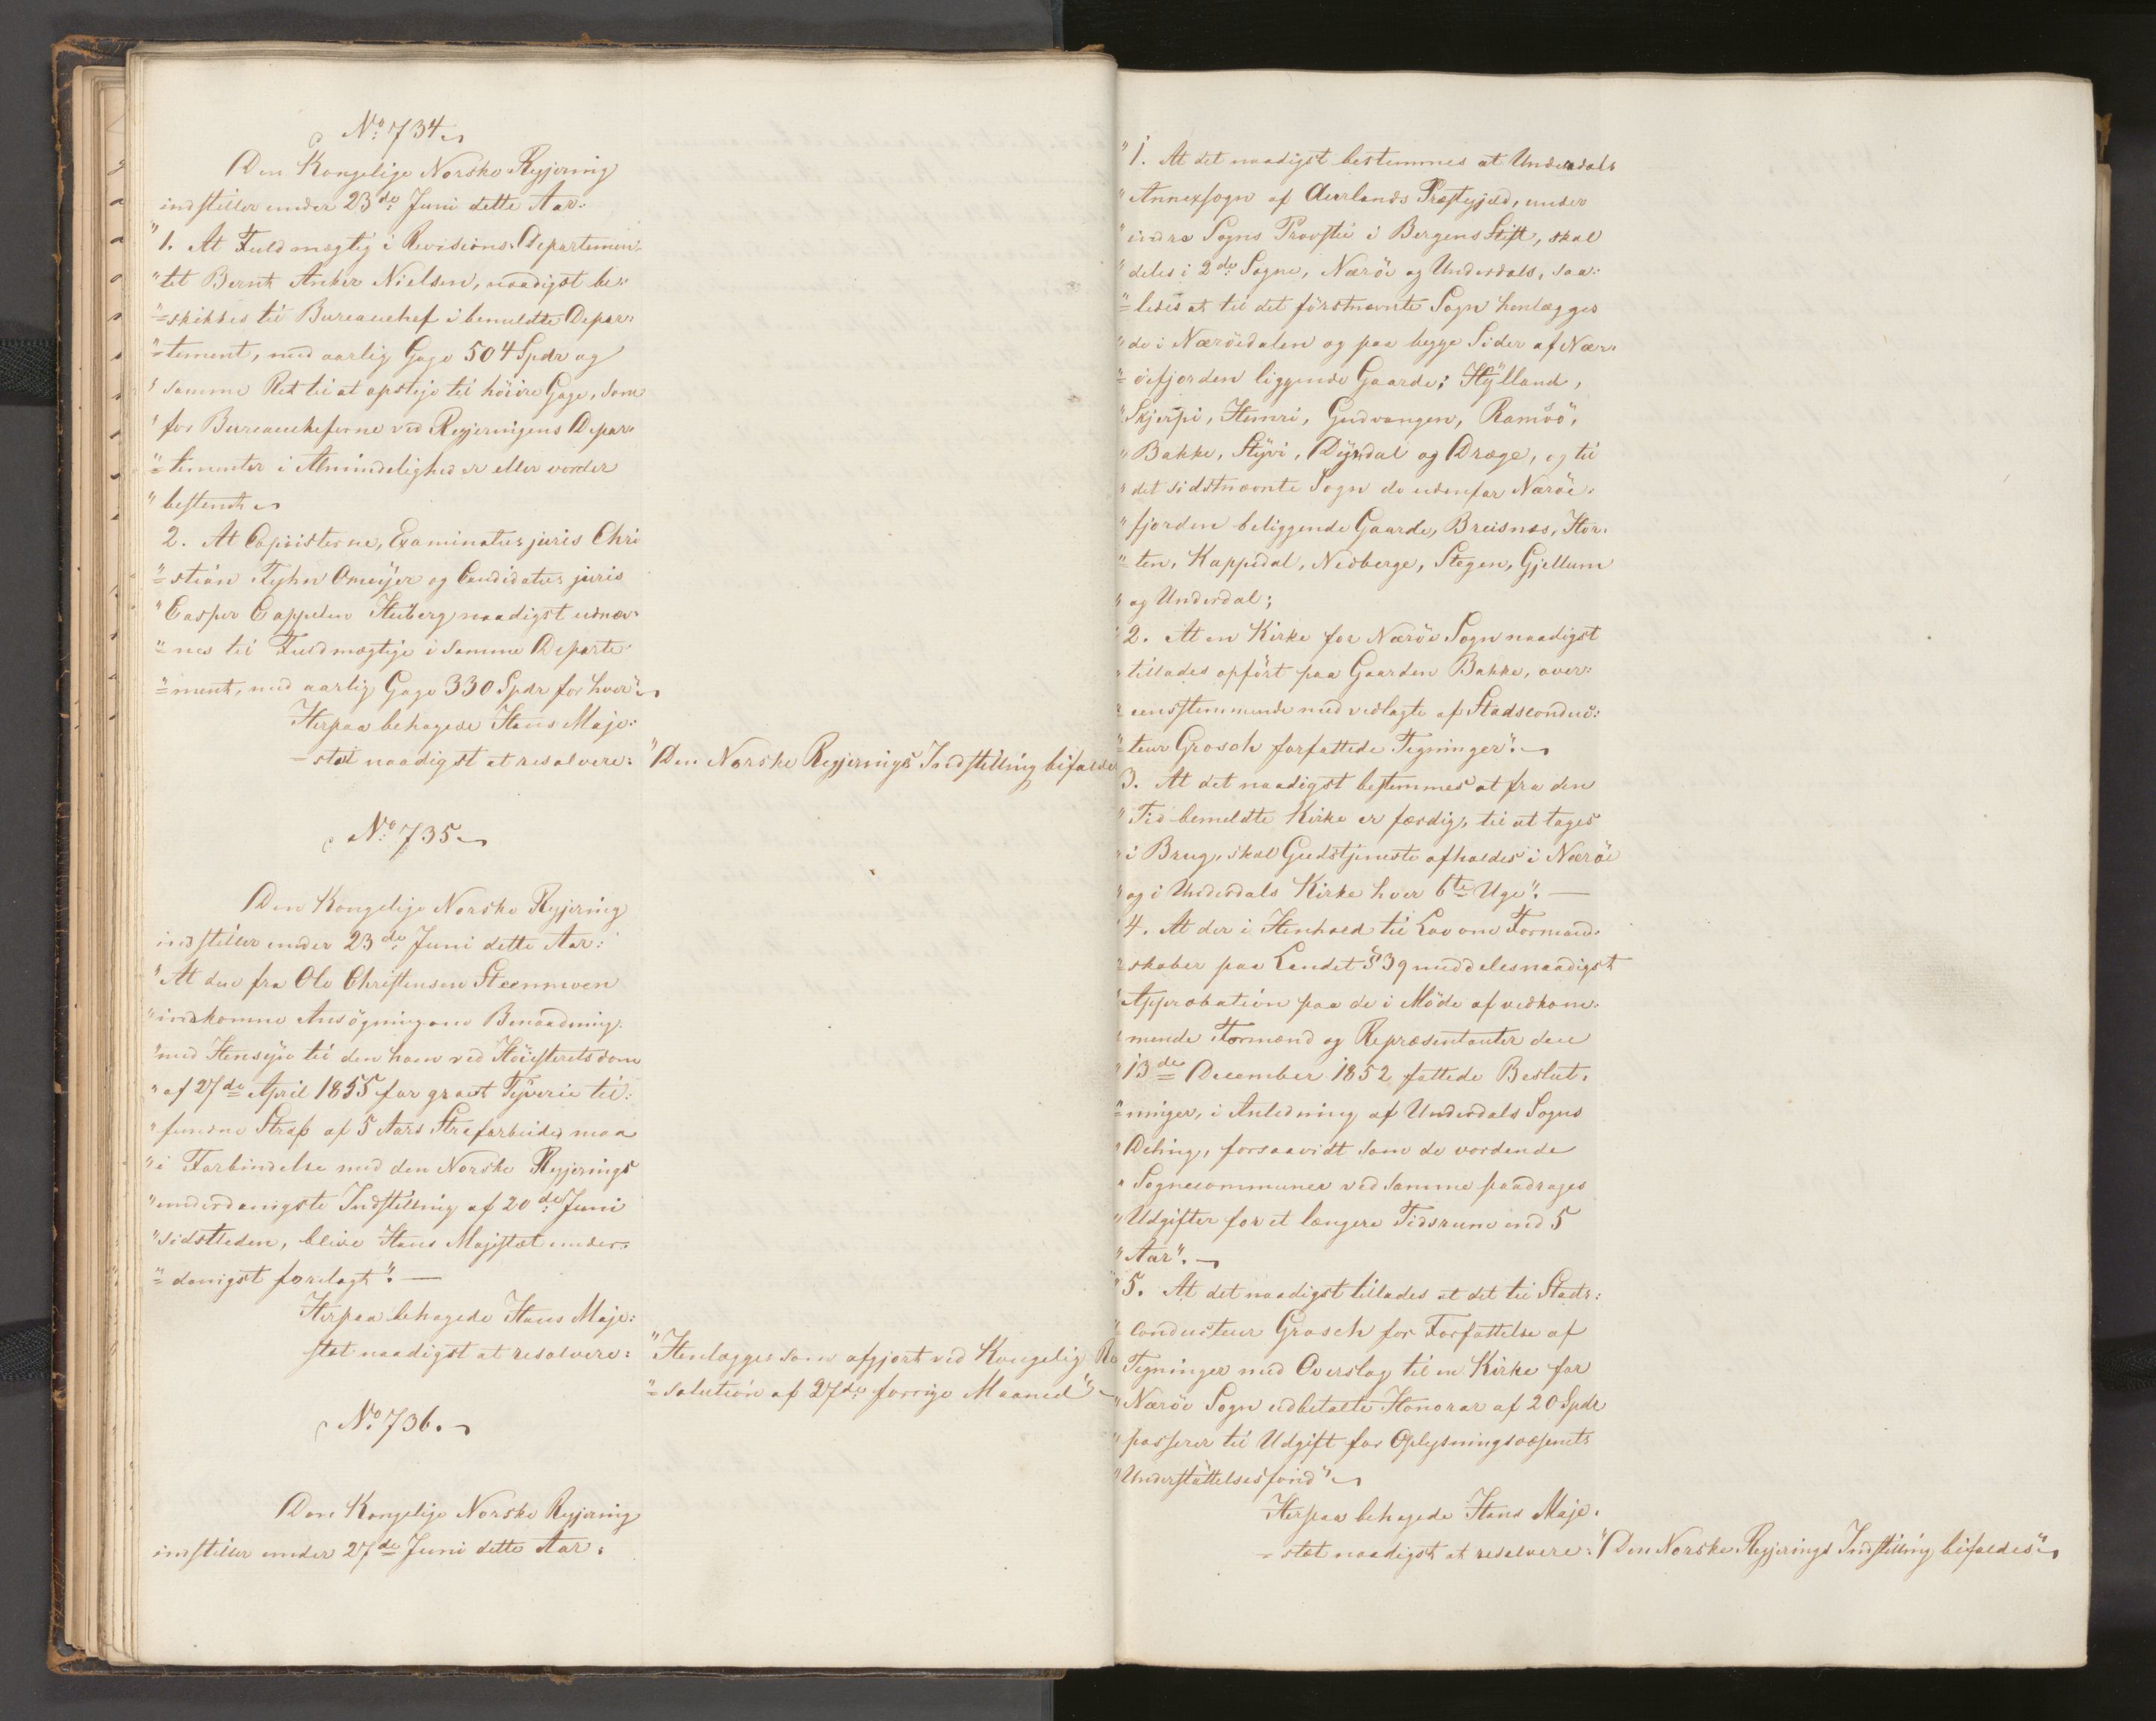 No. 734.
Den Kongelige Norske Regjering
indstiller under 23de Juni dette Aar:
"1. At Fuldmægtig i Revisions-Departemen-
"tet Bernt Anker Nielsen, naadigst be-
"=skikkes til Bureauchef i bemeldte Depar-
"=tement, med aarlig Gage 504 Spdr og
"samme Ret til at opstige til höiere Gage, som
"for Bureaucheferne ved Regjeringens Depar-
"=tementer i Almindelighed er eller vorder
"bestemt
2. At Copiisterne, Examinatus juris Chri
"=stian Tyhn Omeÿer og Candidatus juris
"Casper Cappelen Heiberg naadigst udnæv-
"=nes til Fuldmægtige i samme Departe-
"=ment, med aarlig Gage 330 Spdr for hver".
Herpaa behagede Hans Maje:
=stæt naadigst at resolvere: "Den Norske Regjerings Indstilling bifaldes
No. 735
Den Kongelige Norske Regjering
indstiller under 23de Juni dette Aar:
"At den fra Ole Christensen Steenmoen
"indkomne Ansögning om Benaadning
"med Hensÿn til den ham ved Höiesteretsdom
"af 27de April 1855 for grovt Tÿverie til:
"fundne Straf af 5 Aars Strafarbeide, maa
"i Forbindelse med den Norske Regjerings
"underdanigste Indstilling af 20de Juni
"sidstleden, blive Hans Majestæt under-
"=danigst forelagt". —
Herpaa behagede Hans Maje:
stæt naadigst at resolvere: "Henlægges som afgjort ved Kongelig Re
"=solution af 27de forrige Maaned" –
No. 736.
Den Kongelige Norske Regjering
indstiller under 27de Juni dette Aar:
"1. At det naadigst bestemmes at Underdals
"Annexsogn af Aurlands Præstegjæld, under
"indre Sogns Provstie i Bergens Stift, skal
"deles i 2de Sogne, Næröe og Underdals, saa-
"=ledes at til det förstnævnte Sogn henlægges
"de i Næröedalen og paa begge Sider af Nær-
"=öefjorden liggende Gaarde: Hÿlland,
"Skjerpi, Hemri, Gudvangen, Ramsöö,
"Bakke, Stÿvi, Dÿrdal og Dræge, og til
"det sidstnævnte Sogn de udenfor Næröe-
"fjorden beliggende Gaarde, Breisnæs, Hor-
"=ten, Kappidal, Nedberge, Stegen, Gjellum
"og Underdal;
"2. At en Kirke for Næröe Sogn naadigst
"tillades opfört paa Gaarden Bakke, over-
"=eensstemmende med vedlagte af Stadsconduc-
"=teur Grosch forfattede Tegninger".
3. At det naadigst bestemmes at fra den
"Tid bemeldte Kirke er færdig, til at tages
"i Brug, skal Gudstjeneste afholdes i Næröe
"og i Underdals Kirke hver 6te Uge". —
"4. At der i Henhold til Lov om Formand-
"=skaber paa Landet § 39 meddeles naadigst
"Approbation paa de i Möde af vedkom-
"mende Formænd og Repræsentanter den
"13de December 1852 fattede Beslut-
"=ninger, i Anledning af Underdals Sogns
"Deling, forsaavidt som de vordende
"Sognecommuner ved samme paadrages
"Udgifter for et længere Tidsrum end 5
"Aar".
"5. At det naadigst tillades at det til Stads:
"=conducteur Grosch for Forfattelse af
"Tegninger med Overslag til en Kirke for
"Næröe Sogn udbetalte Honorar af 20 Spdr
"passerer til Udgift for Oplysningsvæsenets
"Understöttelsesfond"
Herpaa behagede Hans Maje-
=stæt naadigst at resolvere: "Den Norske Regjerings Indstilling bifaldes"